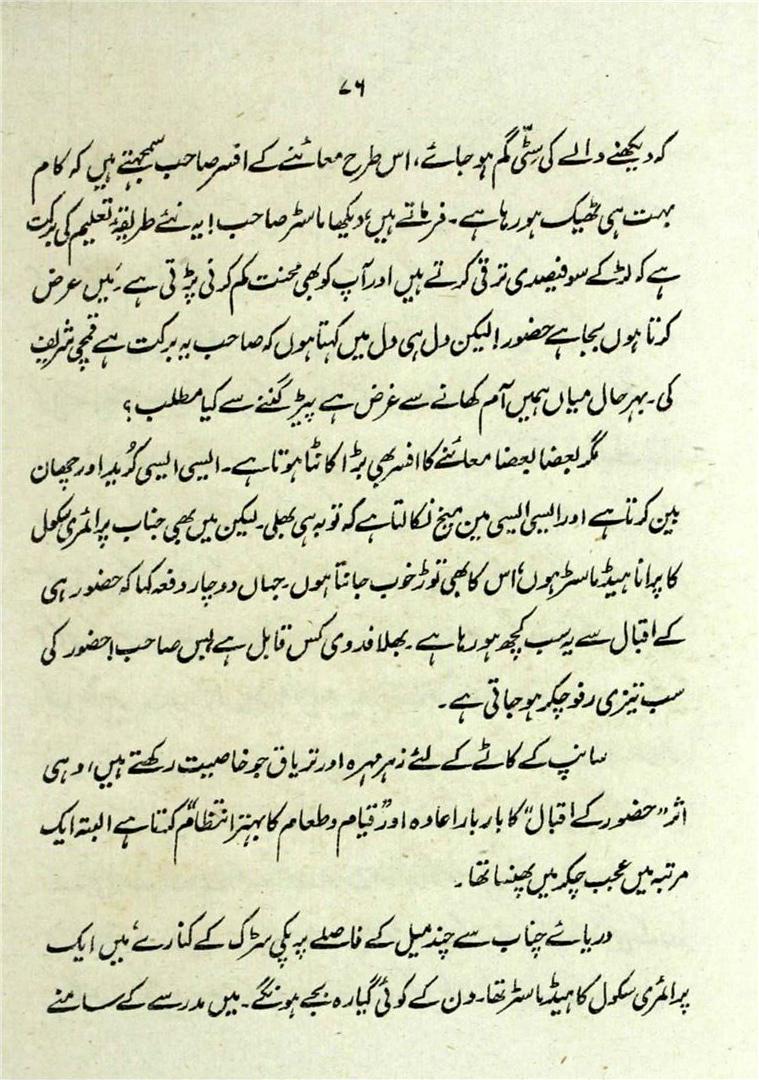 ۷۶
کہ دیکھنے والے کی سِٹّی گم ہو جائے، اس طرح معائنے کے افسر صاحب سمجھتے ہیں کہ کام
بہت ہی ٹھیک ہو رہا ہے۔ فرماتے ہیں، دیکھا ماسٹر صاحب! یہ نئے طریقۂ تعلیم کی برکت
ہے کہ لڑکے سو فیصدی ترقی کرتے ہیں اور آپ کو بھی محنت کم کرنی پڑتی ہے۔ میں عرض
کرتا ہوں بجا ہے حضور! لیکن دل ہی دل میں کہتا ہوں کہ صاحب یہ برکت ہے قمچی شریف
کی۔ بہر حال میاں ہمیں آم کھانے سے غرض ہے پیڑ گننے سے کیا مطلب؟
مگر بعضا بعضا معائنے کا افسر بھی بڑا کانٹا ہوتا ہے۔ ایسی ایسی کُرید اور چھان
بین کرتا ہے اور ایسی ایسی مین میخ نکالتا ہے کہ توبہ ہی بھلی۔ لیکن میں بھی جناب پرائمری سکول
کا پرانا ہیڈ ماسٹر ہوں، اس کا بھی توڑ خوب جانتا ہوں۔ جہاں دو چار دفعہ کہا کہ حضور ہی
کے اقبال سے یہ سب کچھ ہو رہا ہے۔ بھلا فدوی کس قابل ہے بس صاحب! حضور کی
سب تیزی رفو چکر ہو جاتی ہے۔
سانپ کے کاٹے کے لئے زہر مہرہ اور تریاق جو خاصیت رکھتے ہیں، وہی
اثر ”حضور کے اقبال“ کا بار بار اعادہ اور ”قیام و طعام کا بہتر انتظام“ کرتا ہے البتہ ایک
مرتبہ میں عجب چکر میں پھنسا تھا۔
دریائے چناب سے چند میل کے فاصلے پر پکی سڑک کے کنارے، میں ایک
پرائمری سکول کا ہیڈ ماسٹر تھا۔ دن کے کوئی گیارہ بجے ہونگے۔ میں مدرسے کے سامنے